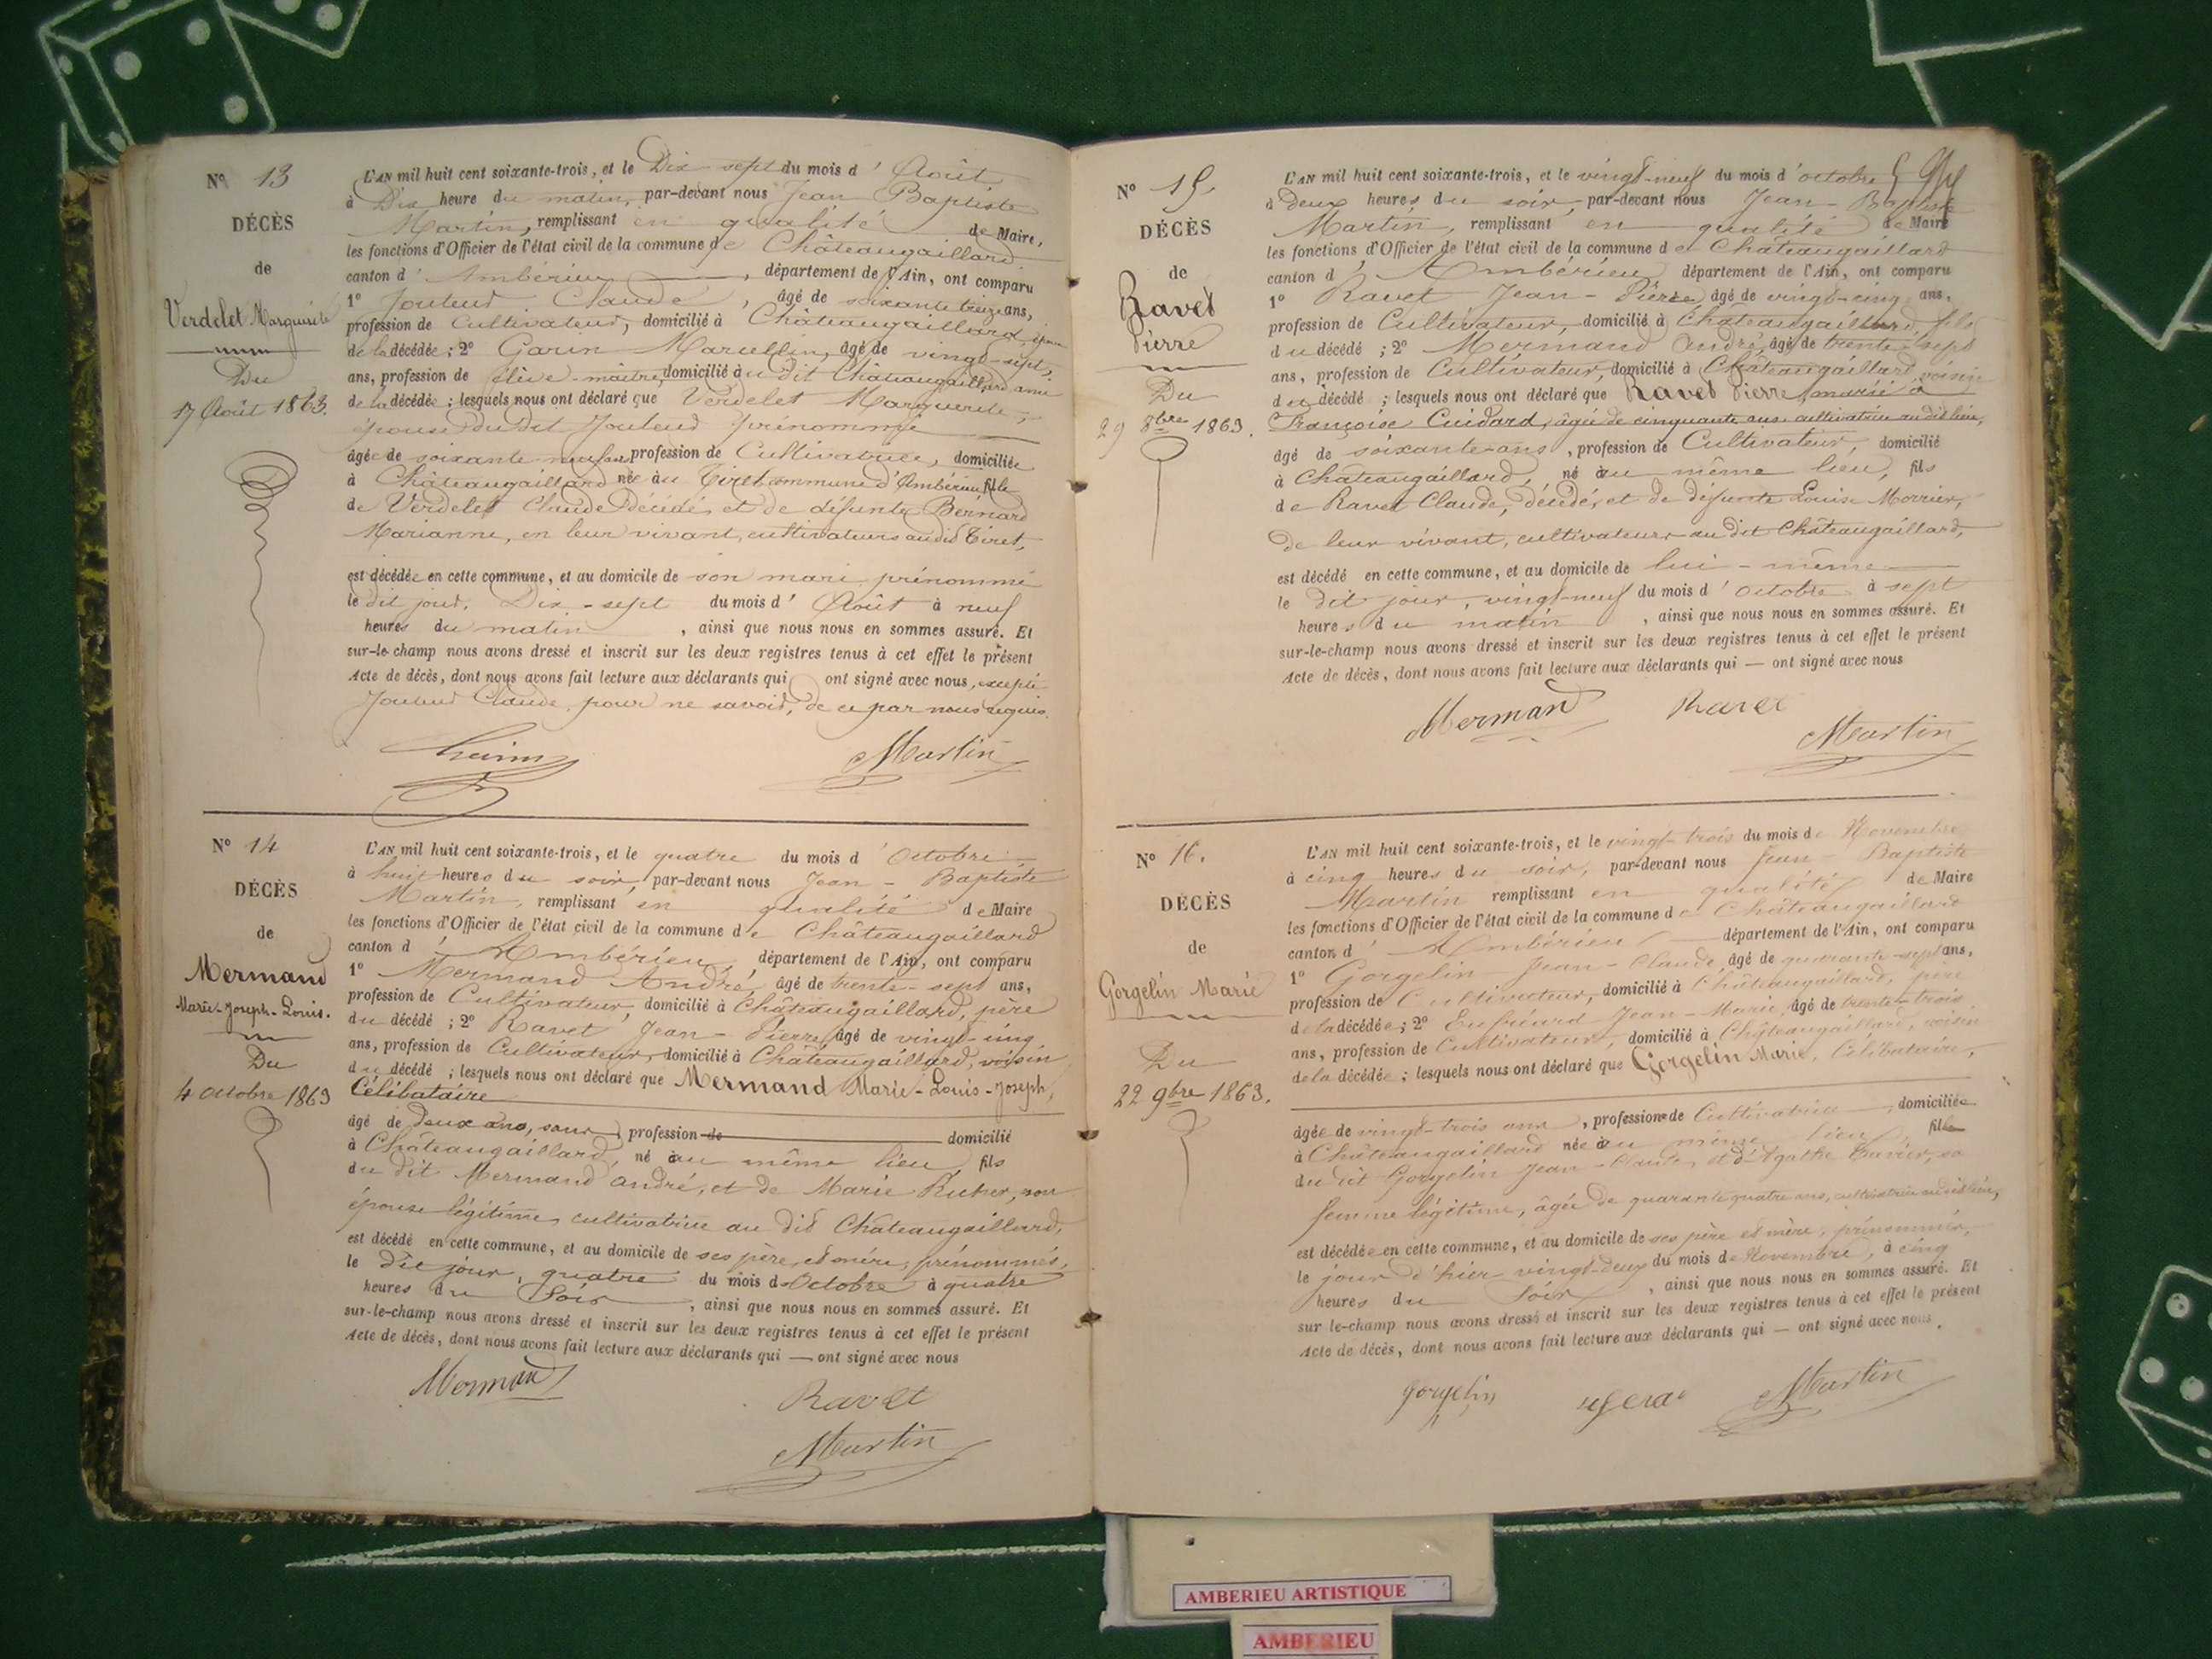 Nº 13
DÉCÈS
de
Verdelet Marguerite
Du
17 Août 1863.
L'AN mil huit cent soixante-trois, et le Dix sept du mois d' Août
à Dix heure du matin, par-devant nous Jean Baptiste
Martin, remplissant en qualité de Maire,
les fonctions d'Officier de l'état civil de la commune de Châteaugaillard
canton d' Ambérieu, département de l'Ain, ont comparu
1º Joutend Claude, âgé de soixante treize ans,
profession de Cultivateur, domicilié à Châteaugaillard, époux
de la décédée ; 2º Garin Marcellin, âgé de vingt-sept,
ans, profession de élève-maître, domicilié au dit Châteaugaillard ami
de la décédée ; lesquels nous ont déclaré que Verdelet Marguerite,
épouse du dit Joutend prénommé
âgée de soixante-neuf ans, profession de Cultivatrice, domiciliée
à Châteaugaillard née au Tiret commune d'Ambérieu fille
de Verdelet Claude décédé, et de défunte Bernard
Marianne, en leur vivant, cultivateurs au dit Tiret,
est décédée en cette commune, et au domicile de son mari prénommé
le dit jour, Dix-sept du mois d' Août à neuf
heures du matin, ainsi que nous nous en sommes assuré. Et
sur-le-champ nous avons dressé et inscrit sur les deux registres tenus à cet effet le présent
Acte de décès, dont nous avons fait lecture aux déclarants qui ont signé avec nous, excepté
Joutend Claude, pour ne savoir, de ce par nous requis.
Martin
Nº 14
DÉCÈS
de
Mermand
Marie-Joseph-Louis.
Du
4 octobre 1863
L'AN mil huit cent soixante-trois, et le quatre du mois d' Octobre
à huit heures du soir, par-devant nous Jean-Baptiste
Martin, remplissant en qualité de Maire
les fonctions d'Officier de l'état civil de la commune de Châteaugaillard
canton d' Ambérieu, département de l'Ain, ont comparu
1º Mermand André, âgé de trente-sept ans,
profession de Cultivateur, domicilié à Châteaugaillard, père
du décédé ; 2º Ravet Jean-Pierre, âgé de vingt-cinq
ans, profession de Cultivateur, domicilié à Châteaugaillard, voisin
du décédé ; lesquels nous ont déclaré que Mermand Marie-Louis-Joseph,
Célibataire
âgé de deux ans, sans profession de domicilié
à Châteaugaillard, né au même lieu, fils
du dit Mermand André, et de Marie son
épouse légitime, cultivatrice au dit Châteaugaillard,
est décédé en cette commune, et au domicile de ses père et mère, prénommés,
le dit jour, quatre du mois d'Octobre à quatre
heures du Soir, ainsi que nous nous en sommes assuré. Et
sur-le-champ nous avons dressé et inscrit sur les deux registres tenus à cet effet le présent
Acte de décès, dont nous avons fait lecture aux déclarants qui — ont signé avec nous
Mermand
Ravet
Martin
Nº 15
DÉCÈS
de
Ravet
Pierre
Du
29 8bre 1863.
L'AN mil huit cent soixante-trois, et le vingt-neuf du mois d'octobre
à deux heures du soir, par-devant nous Jean-Baptiste
Martin, remplissant en qualité de Maire
les fonctions d'Officier de l'état civil de la commune de Châteaugaillard
canton d' Ambérieu département de l'Ain, ont comparu
1º Ravet Jean-Pierre âgé de vingt-cinq ans,
profession de Cultivateur, domicilié à Châteaugaillard, fils
du décédé ; 2º Mermand André, âgé de trente-sept
ans, profession de Cultivateur, domicilié à Châteaugaillard, voisin
du décédé ; lesquels nous ont déclaré que Ravet Pierre, marié à
Françoise Cuidard, âgée de cinquante ans, cultivatrice au dit lieu,
âgé de soixante ans, profession de Cultivateur, domicilié
à Châteaugaillard, né au même lieu, fils
de Ravet Claude, décédé, et de défunte Louise Morrier,
de leur vivant, cultivateurs au dit Châteaugaillard,
est décédé en cette commune, et au domicile de lui-même
le dit jour, vingt-neuf du mois d'octobre à sept
heures du matin, ainsi que nous nous en sommes assuré. Et
sur-le-champ nous avons dressé et inscrit sur les deux registres tenus à cet effet le présent
Acte de décès, dont nous avons fait lecture aux déclarants qui — ont signé avec nous
Mermand Ravet
Martin
Nº 16.
DÉCÈS
de
Gorgelin Marie
Du
22 9bre 1863.
L'AN mil huit cent soixante-trois, et le vingt-trois du mois de Novembre
à cinq heures du soir, par-devant nous Jean-Baptiste
Martin remplissant en qualité de Maire
les fonctions d'Officier de l'état civil de la commune de Châteaugaillard
canton d' Ambérieu département de l'Ain, ont comparu
1º Gorgelin Jean-Claude, âgé de quarante-sept ans,
profession de Cultivateur, domicilié à Châteaugaillard, père
de la décédée ; 2º Jean-Marie, âgé de trente-trois
ans, profession de Cultivateur, domicilié à Châteaugaillard, voisin
de la décédée ; lesquels nous ont déclaré que Gorgelin Marie, Célibataire,
âgée de vingt-trois ans, profession de Cultivatrice, domiciliée
à Châteaugaillard née au même lieu, fille
du dit Gorgelin Jean-Claude, et d'Agathe sa
femme légitime, âgée de quarante quatre ans, cultivatrice au dit lieu,
est décédée en cette commune, et au domicile de ses père et mère, prénommés,
le jour d'hier vingt-deux du mois de Novembre, à cinq
heures du Soir, ainsi que nous nous en sommes assuré. Et
sur le-champ nous avons dressé et inscrit sur les deux registres tenus à cet effet le présent
Acte de décès, dont nous avons fait lecture aux déclarants qui — ont signé avec nous.
Gorgelin Martin
AMBERIEU ARTISTIQUE
AMBERIEU